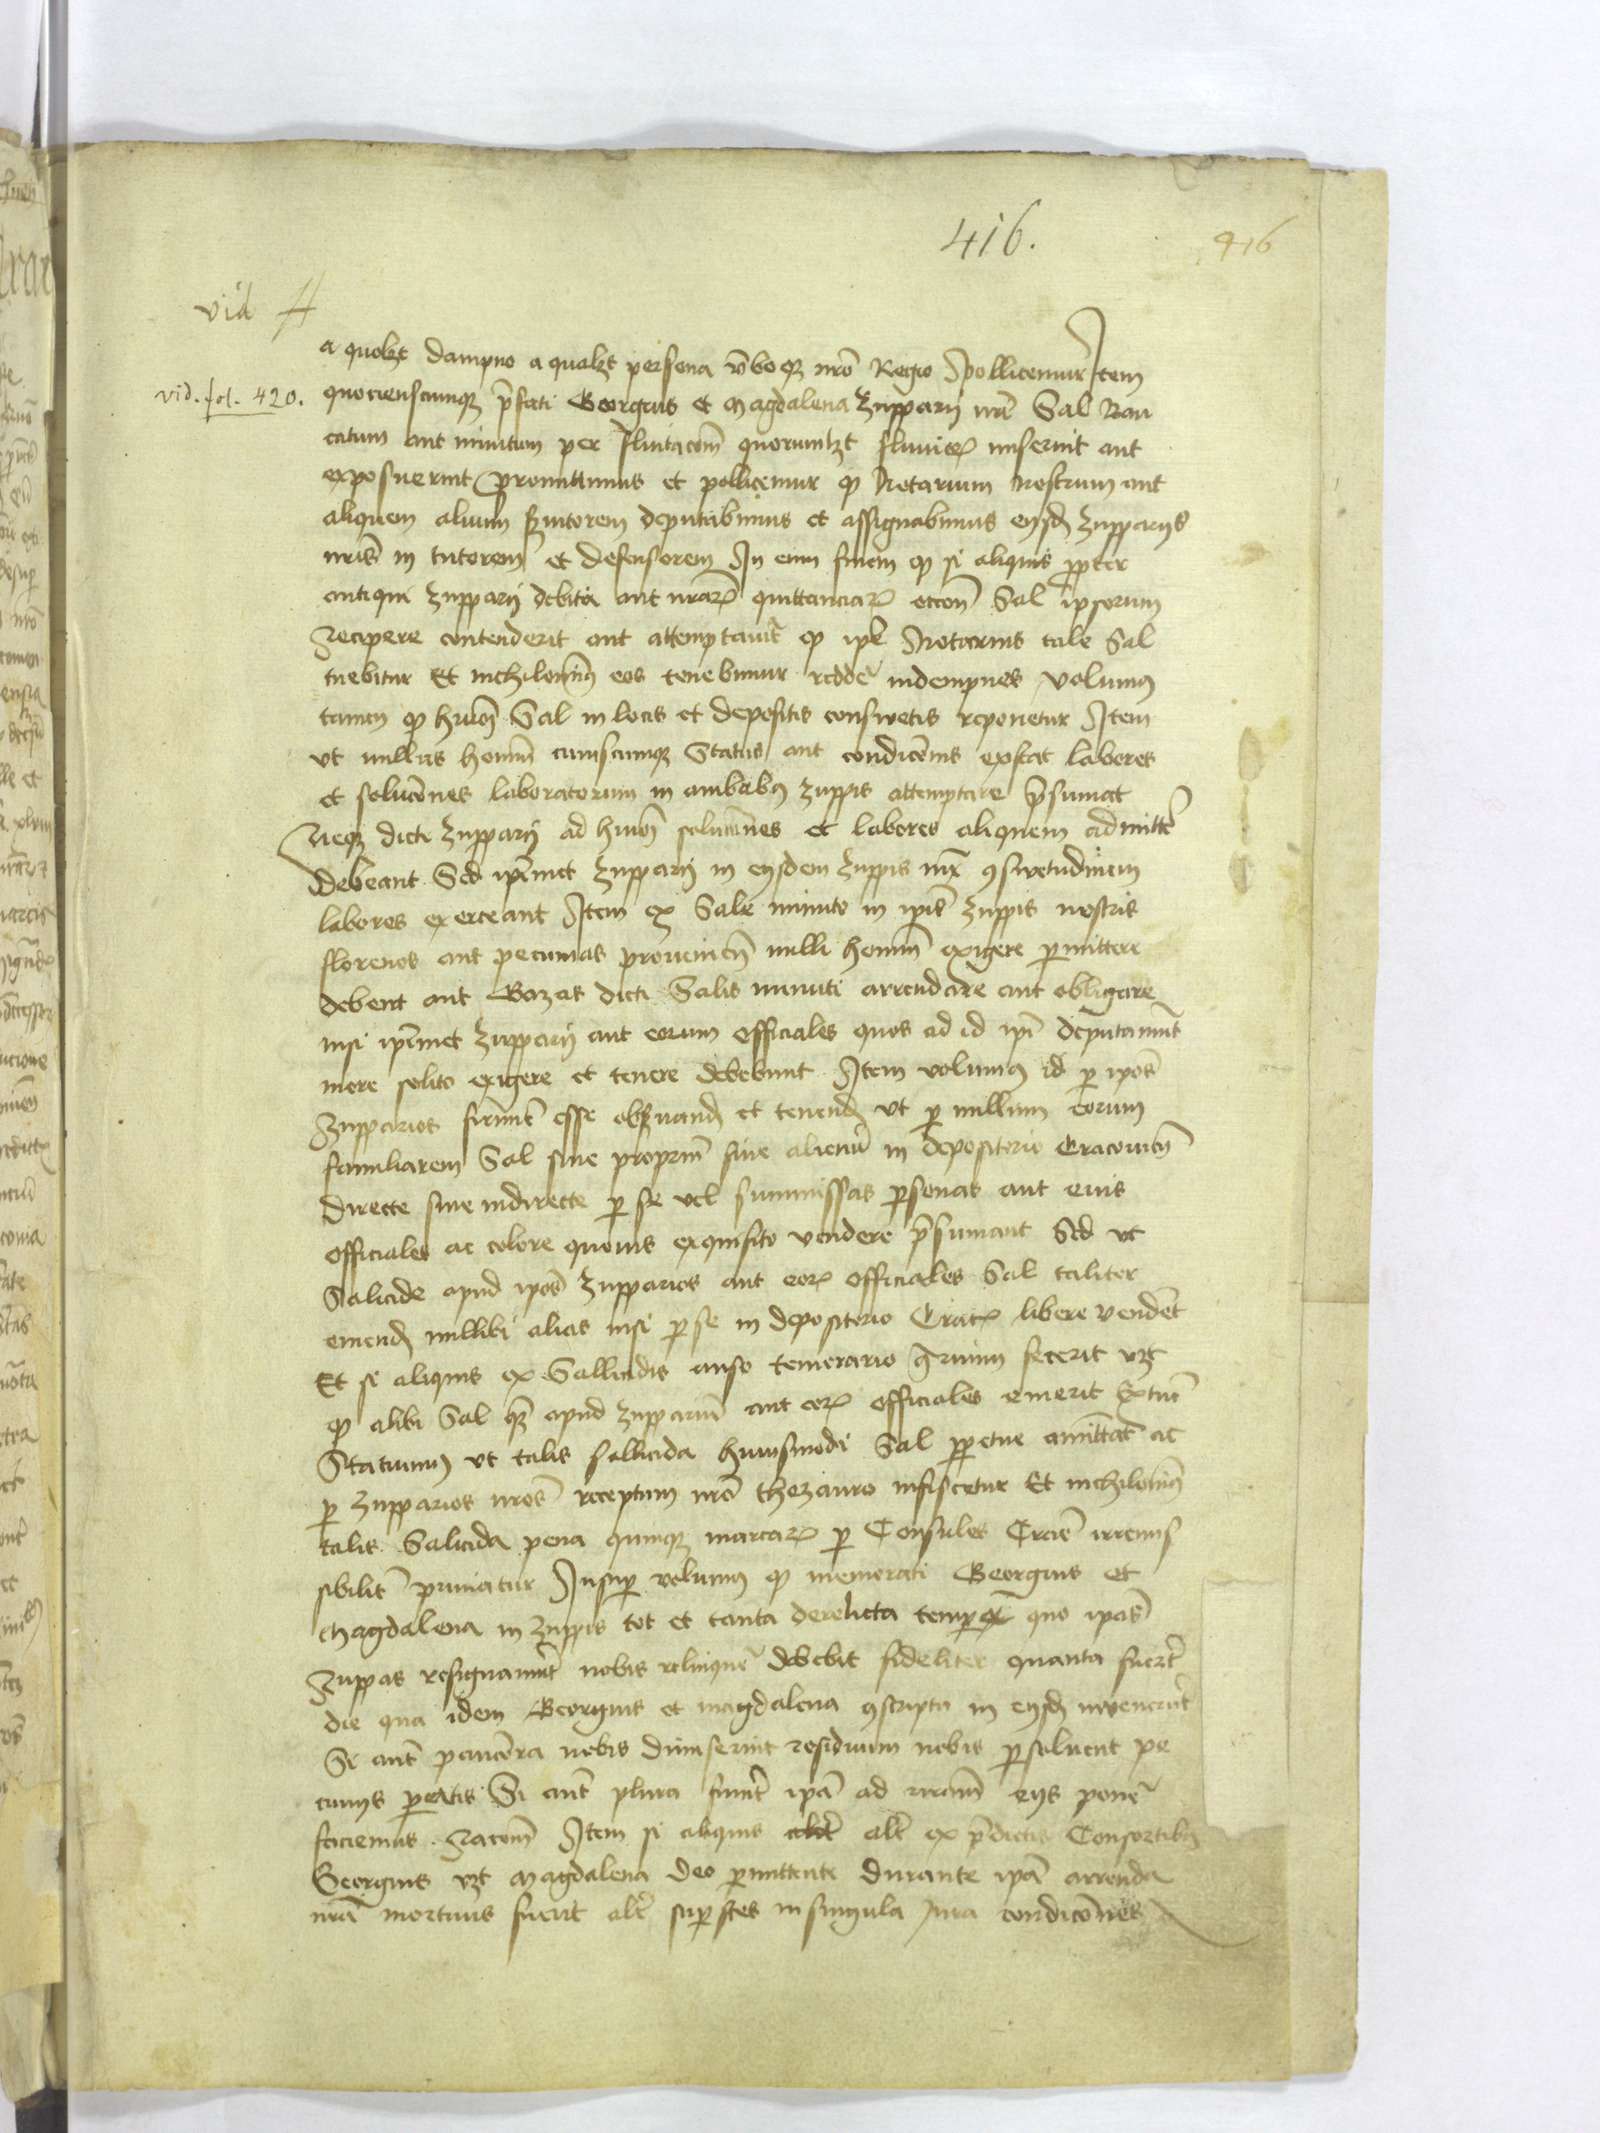 416.
416
vid A
vid. fol. 420.
a quolzt dampno a qualzt persona v̄boqz nr̄o Regio pollicemur Item
quocienscumqz p̄fati Georgius et Magdalena Zupparij nr̄i Sal Ban
catum aut minutum per fluitacōm quorumlzt fluuior miserint aut
exposuerint promittimus et pollicemur q Notarium Nostrum aut
aliquem alium Szuitorem deputabimus et assignabimus eijsd Zupparijs
nr̄is in tutorem et defensorem In eum finem q si aliquis propter
antiqui Zupparij debita aut nr̄ar quittanciar Sal ipsorum
Recipere contenderit aut attemptauit q ip̄e Notarius tale Sal
tuebitur Et nichilomin9 eos tenebimur redde indempnes Volum9
tamen q hui9mōi Sal in locis et depositis consuetis reponetur Item
vt nullus homin̄ cuiuscumqz Status aut condicōnis exstat labores
et solucōnes laboratorum in ambab9 Zuppis attemptare p̄sumat
Neqz dicti Zupparij ad hui9mōi solucōnes et labores aliquem admitte
debeant Sed ip̄imet Zupparij in eijsdem Zuppis iux 9swetudinem
labores exerceant Item ex Sale minuto in ip̄is Zuppis nostris
florenos aut pecunias prouenien̄ nulli homin̄ exigere pmittere
debent aut Bozas dicti Salis minuti arrendare aut obligare
nisi ip̄imet Zupparij aut eorum officiales quos ad id ip̄i deputauint
more solito exigere et tenere debebunt Item volum9 id p ip̄os
Zupparios firmit esse obseruand et tenend vt p nullum eorum
familiarem Sal siue propriu siue alienu in depositorio Cracouien̄
directe siue indirecte p se vel summissas psonas aut eius
officiales ac colore quouis exquisito vendere p̄sumant Sed vt
Salicide apud ip̄os Zupparios aut eor officiales Sal taliter
emend nullibi alias nisi p se in depositorio Crac libere vendent
Et si aliquis ex Sallicidis auso temerario 9rium fecerit vzt
q alibi Sal qz apud Zuppariu aut eor officiales emerit Extunc
Statuim9 vt talis sallicida huiusmodi Sal ppetue amittat ac
p Zupparios nr̄os receptum nr̄o thezauro infiscetur Et nichilomin9
talis Salicida pena quinqz marcar p Consules Crac irremis
sibilit puniatur Insup volum9 q memorati Georgius et
Magdalena in Zuppis tot et tanta derelicta tempe quo ip̄as
Zuppas resignauint nobis relinque debebit fideliter quanta fuert
die qua idem Georgius et Magdalena 9scripta in eijsd inuenerut
Si aut pauciora nobis dimiserint residuum nobis psoluent pe
cunijs paratis Si aut plura fuint ip̄a ad nr̄am eijs pone
faciemus Racōm Item si aliquis alt ex p̄dictis Consortib9
Georgius vzt Magdalena deo pmittente durante ip̄a arrenda
nr̄a mortuus fuerit alt supstes in singula Jura condicōnes